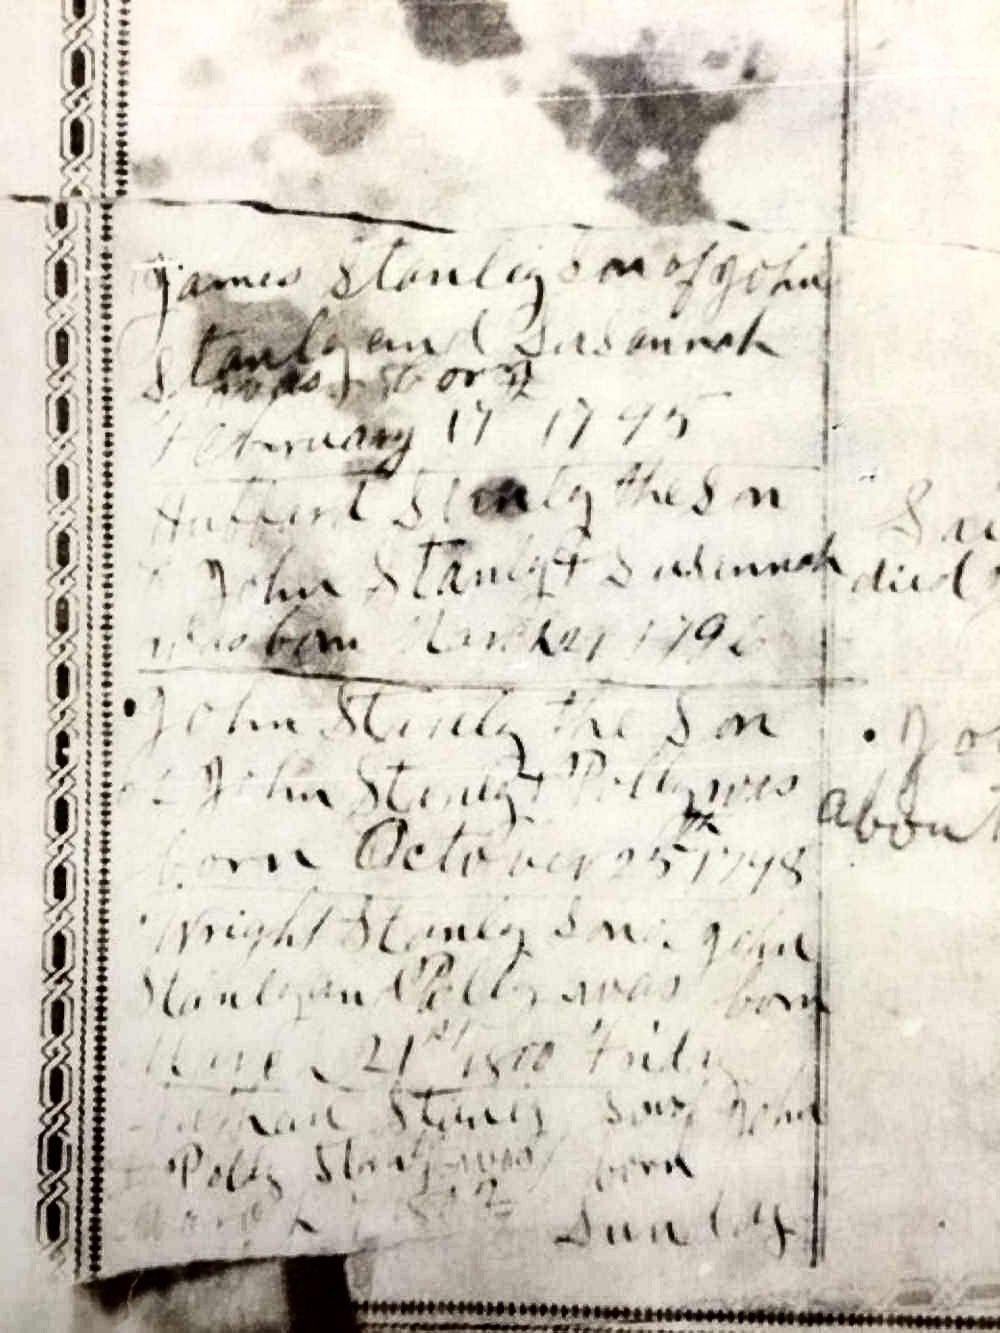 James Stanley Son of John
Stanly and Susannah
Stanly was born
February 17 1795
Hubbard Stanly the Son
John Stanly & Susannah
was born March 21 1796
John Stanly the Son
of John Stanly & Polly was
born October 25th 1798
Wright Stanly Son of John
Stanly and Polly was born
21st 1800 Friday
Stanly Son of John
& Polly Stanly was born
March Sunday
died
about